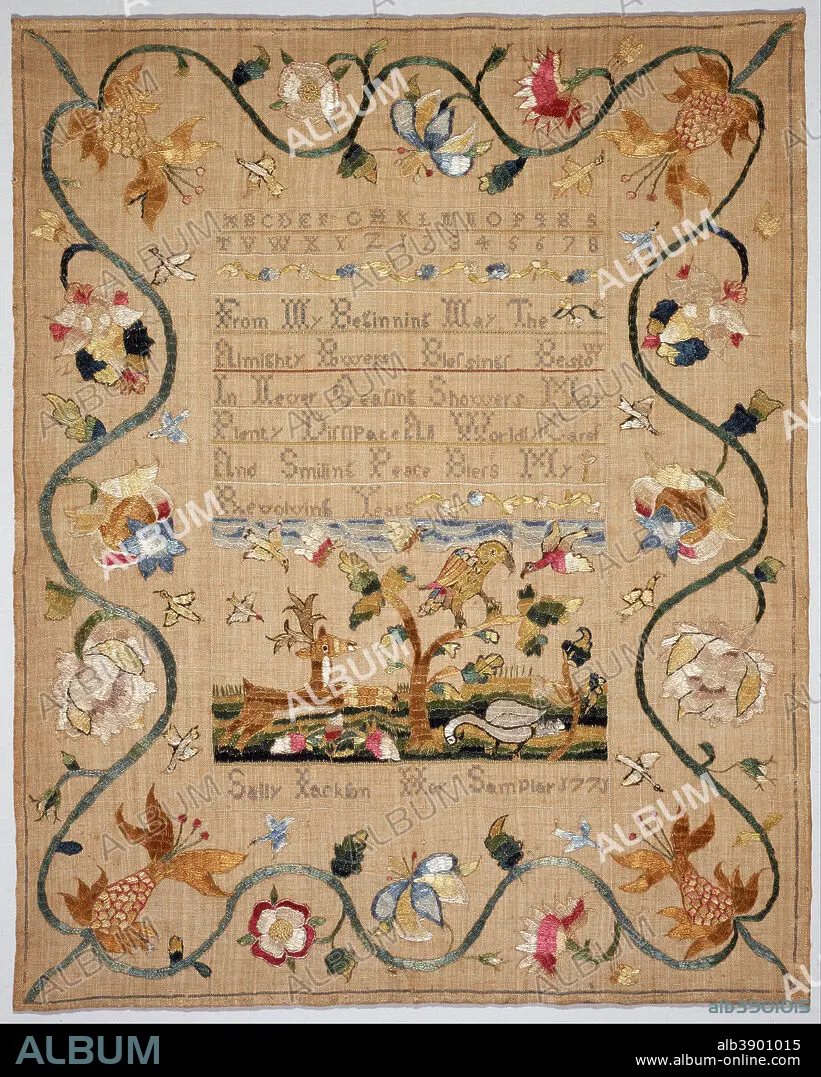 A B C D E F G H K L M N O P Q R S
T V W X Y Z 1 2 3 4 5 6 7 8
From My Beginning May The
Almighty Powers Blefsings Bestow
In Never Ceasing Showers May
Plenty Difsipate All Worldly Cares
And Smiling Peace Blefs My
Revolving Years
Sally Jackson Her Sampler 1771
ALBUM
alb3901015
ALBUM
alb3901015
www.album-online.com